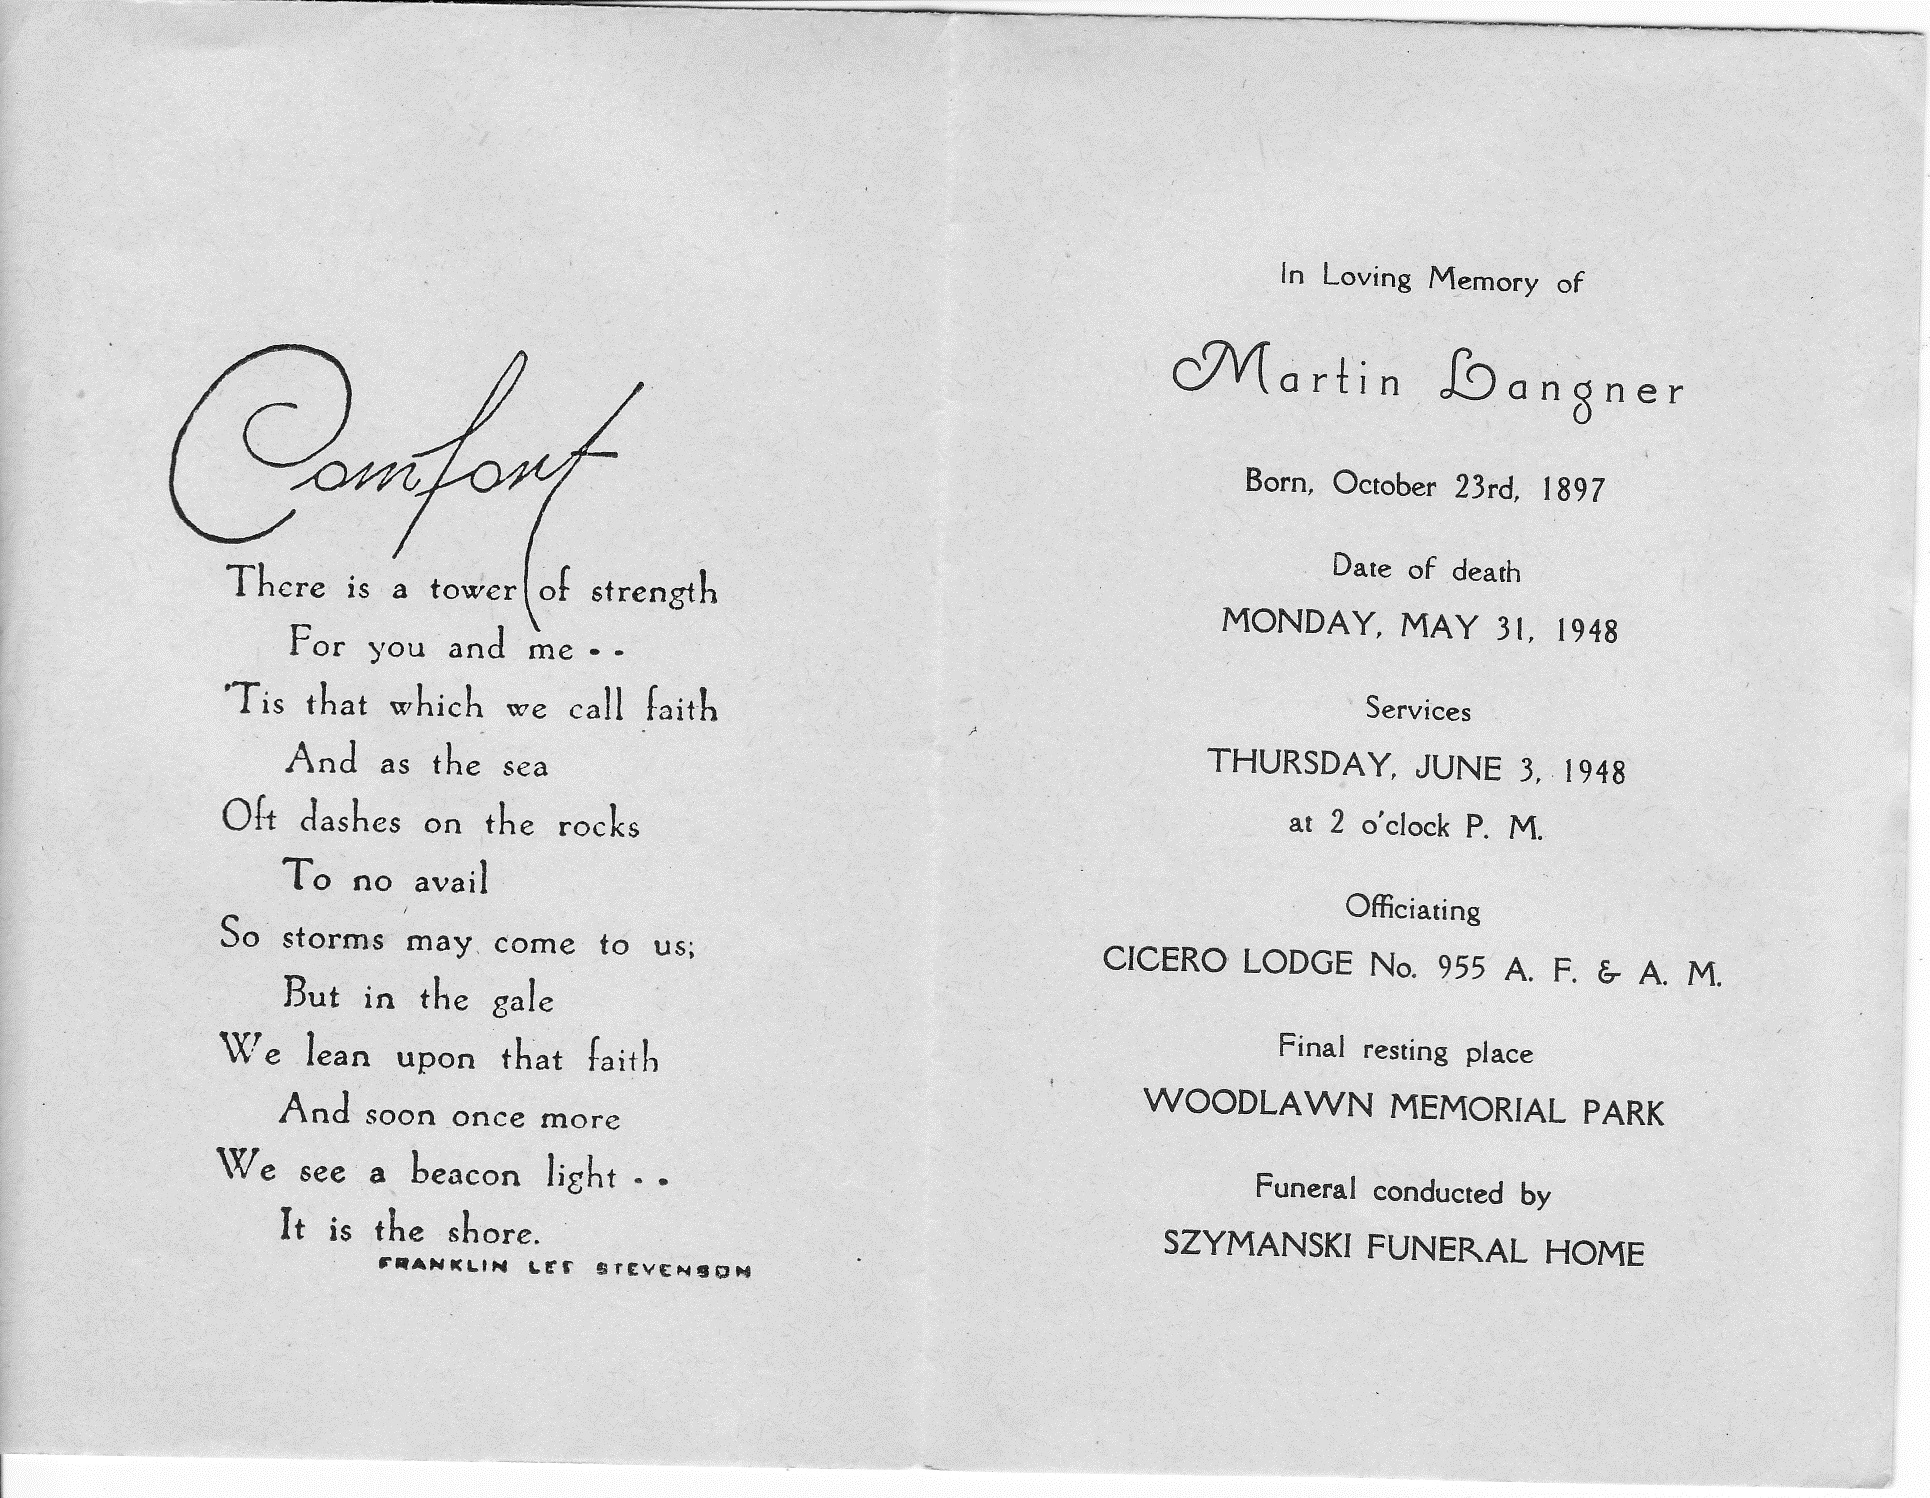 Comfort
There is a tower of strength
For you and me - -
'Tis that which we call faith
And as the sea
Oft dashes on the rocks
To no avail
So storms may come to us;
But in the gale
We lean upon that faith
And soon once more
We see a beacon light - -
It is the shore.
FRANKLIN LEE STEVENSON
In Loving Memory of
Martin Langner
Born, October 23rd, 1897
Date of death
MONDAY, MAY 31, 1948
Services
THURSDAY, JUNE 3, 1948
at 2 o'clock P. M.
Officiating
CICERO LODGE No. 955 A. F. & A. M.
Final resting place
WOODLAWN MEMORIAL PARK
Funeral conducted by
SZYMANSKI FUNERAL HOME